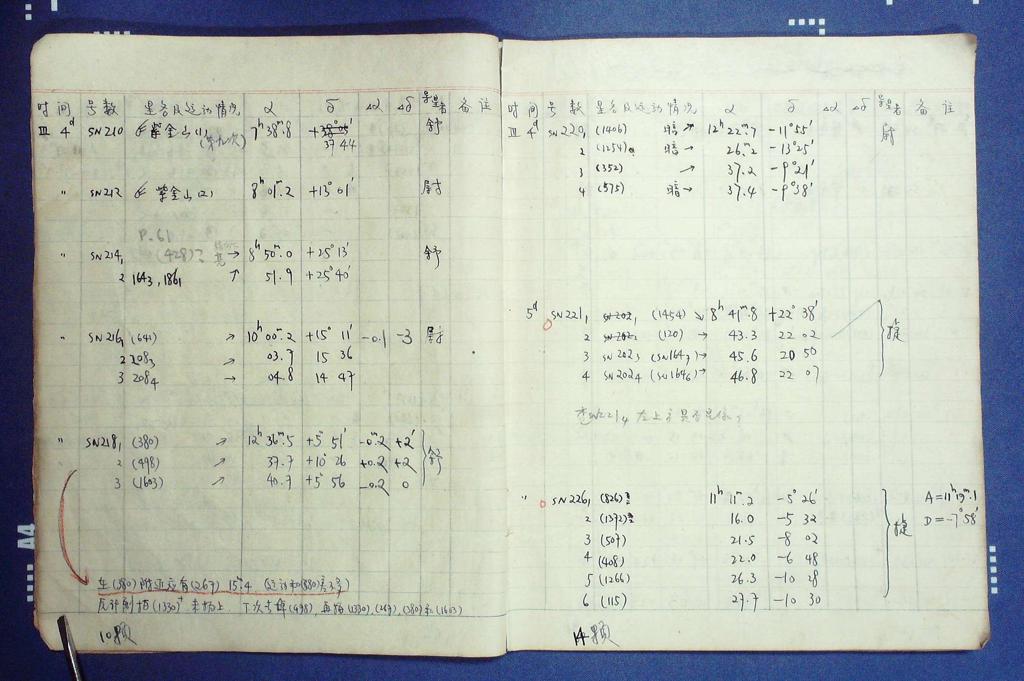 时间 号数 星名及运动情况 α δ Δα Δδ 备注
Ⅲ 4ᵈ SN210 紫金山(1) 7ʰ 38ᵐ.8 舒
(第九次) 37 44
" SN212 紫金山(2) 8ʰ 01ᵐ.2 +13° 01'
P.61
" SN214₁ (428)? → 8ʰ 50ᵐ.0 +25° 13' 舒
2 1643, 1861 ↗ 51.9 +25° 40'
" SN216₁ (641) ↗ 10ʰ 00ᵐ.2 +15° 11' -0.1 -3
2 208₃ → 03.7 15 36
3 208₄ → 04.8 14 47
" SN218₁ (380) ↗ 12ʰ 36ᵐ.5 +5° 51' -0.2 +2' 舒
2 (498) ↗ 37.7 +10° 26 +0.2 +2
3 (1603) ↗ 40.7 +5° 56 -0.2 0
在(380)附近应有(267) 15ᵐ.4
(1330) 未拍上 下次 (498), 再拍(1330), (267), (380)和(1603)
10颗
时间 号数 星名及运动情况 α δ Δα Δδ 备注
Ⅲ 4ᵈ SN220₁ (1406) 暗 ↗ 12ʰ 22ᵐ.7 -11° 55'
2 (1254) 暗 → 26ᵐ.2 -13° 25'
3 (352) ↗ 37.2 -9° 21'
4 (575) 暗 → 37.4 -9° 38'
5ᵈ SN221₁ SN202₁ (1454) ↘ 8ʰ 41ᵐ.8 +22° 38' 捷
2 SN202₂ (120) → 43.3 22 02
3 SN202₃ (SN164₇) → 45.6 20 50
4 SN202₄ (SN164₆) → 46.8 22 07
SN221₄ 左上
" SN226₁ (826) 11ʰ 11ᵐ.2 -5° 26' 捷 A=11ʰ19ᵐ.1
2 (1372) 16.0 -5 32 D=-7°58'
3 (507) 21.5 -8 02
4 (408) 22.0 -6 48
5 (1266) 26.3 -10 28
6 (115) 27.7 -10 30
14颗
A4